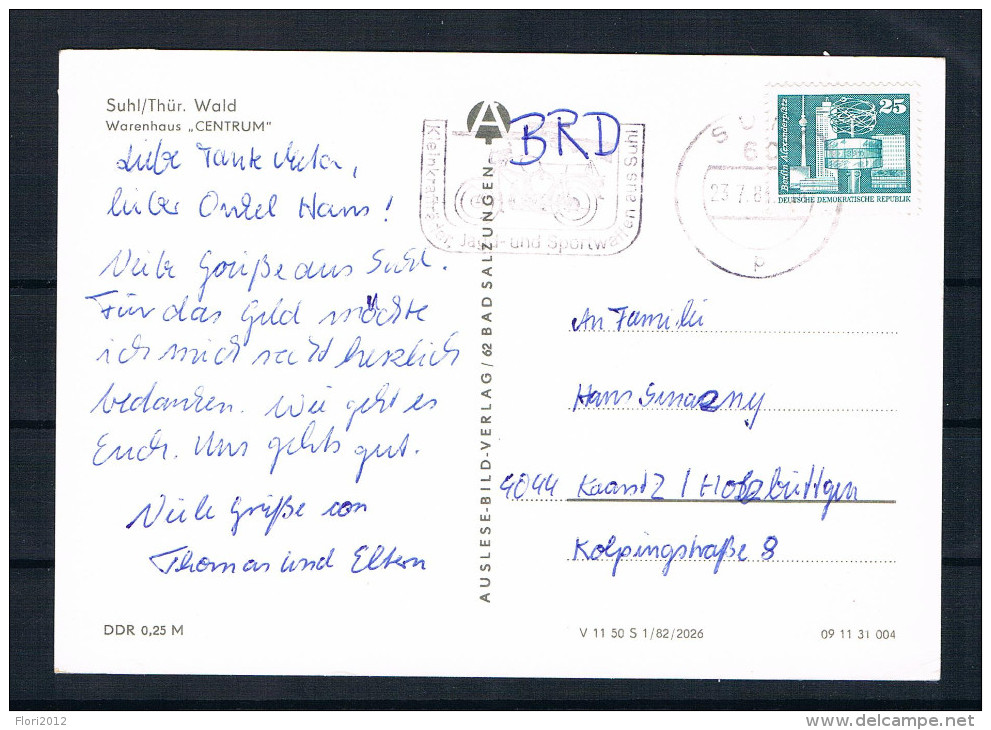 Suhl/Thür. Wald
Warenhaus „CENTRUM"
Liebe Tante Meta,
lieber Onkel Hans!
Viele Grüße aus Suhl.
Für das Geld möchte
ich mich recht herzlich
bedanken. Wie geht es
Euch. Uns gehts gut.
Viele Grüße von
Thomas und Eltern
DDR 0,25 M
AUSLESE-BILD-VERLAG / 62 BAD SALZUNGEN
A
BRD
Kleinkrafträder, Jagd- und Sportwaffen aus Suhl
SU
23.7.8
p
Berlin, Alexanderplatz
25
DEUTSCHE DEMOKRATISCHE REPUBLIK
An Familie
Hans
4044 Kaarst 2 / Holzbüttgen
Kolpingstraße 8
V 11 50 S 1/82/2026
09 11 31 004
Flori2012
www.delcampe.net